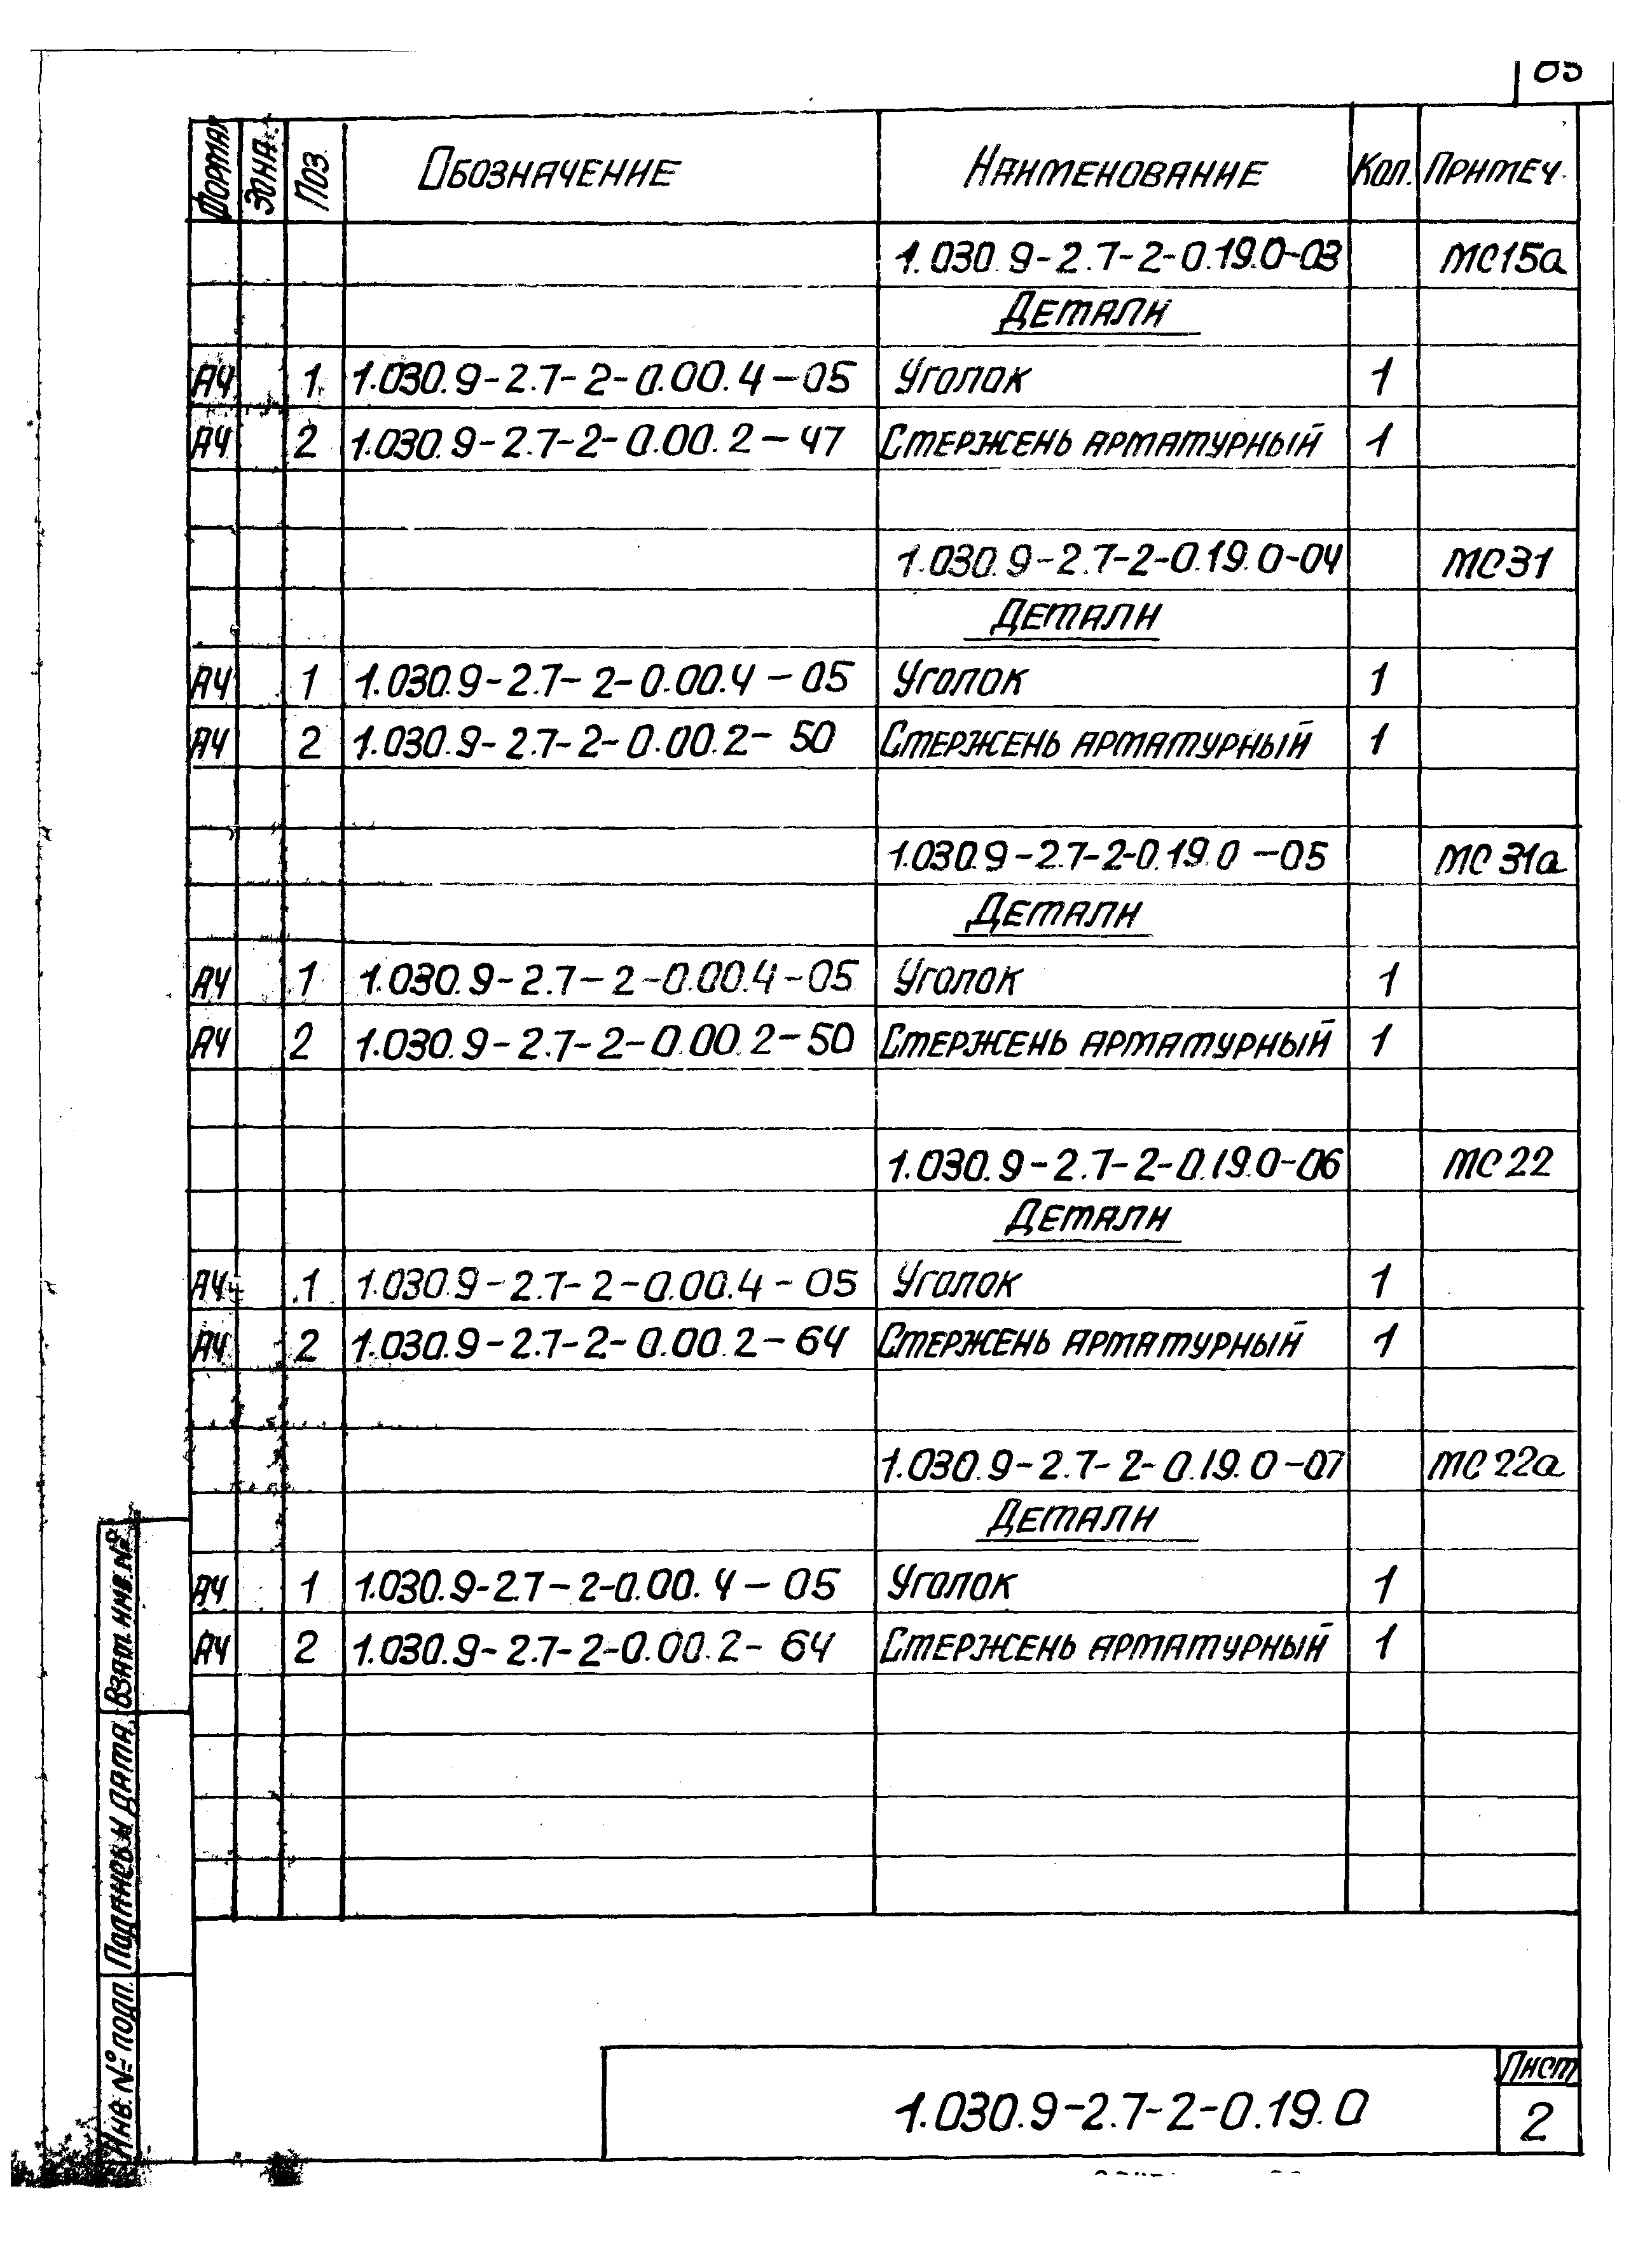 Формат Зона Поз. Обозначение Наименование Кол. Примеч.
1.030.9-2.7-2-0.19.0-03 МС15а
Детали
А4 1 1.030.9-2.7-2-0.00.4-05 Уголок 1
А4 2 1.030.9-2.7-2-0.00.2-47 Стержень арматурный 1
1.030.9-2.7-2-0.19.0-04 МС31
Детали
А4 1 1.030.9-2.7-2-0.00.4-05 Уголок 1
А4 2 1.030.9-2.7-2-0.00.2-50 Стержень арматурный 1
1.030.9-2.7-2-0.19.0-05 МС31а
Детали
А4 1 1.030.9-2.7-2-0.00.4-05 Уголок 1
А4 2 1.030.9-2.7-2-0.00.2-50 Стержень арматурный 1
1.030.9-2.7-2-0.19.0-06 МС22
Детали
А4 1 1.030.9-2.7-2-0.00.4-05 Уголок 1
А4 2 1.030.9-2.7-2-0.00.2-64 Стержень арматурный 1
1.030.9-2.7-2-0.19.0-07 МС22а
Детали
А4 1 1.030.9-2.7-2-0.00.4-05 Уголок 1
А4 2 1.030.9-2.7-2-0.00.2-64 Стержень арматурный 1
Взам. инв. №
Подпись и дата
Инв. № подл.
1.030.9-2.7-2-0.19.0
Лист
2